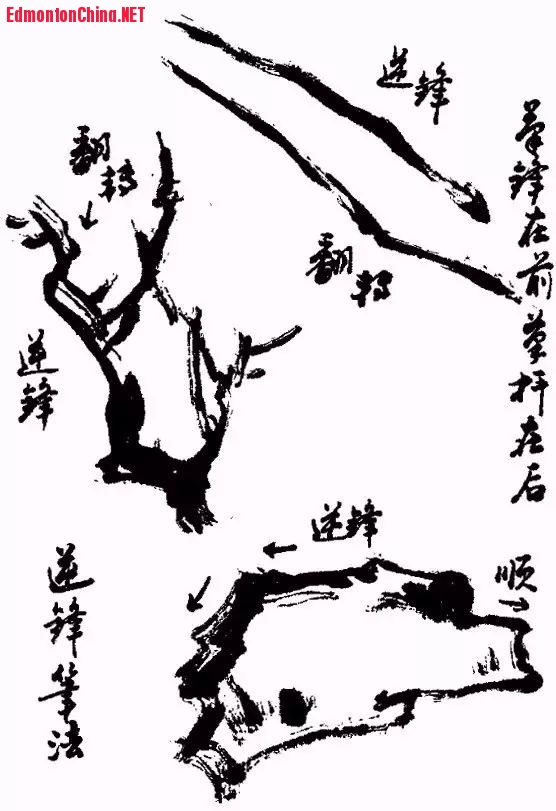 EdmontonChina.NET
逆锋
笔锋在前笔杆在后
翻转
翻转
逆锋
逆锋
顺
逆锋笔法